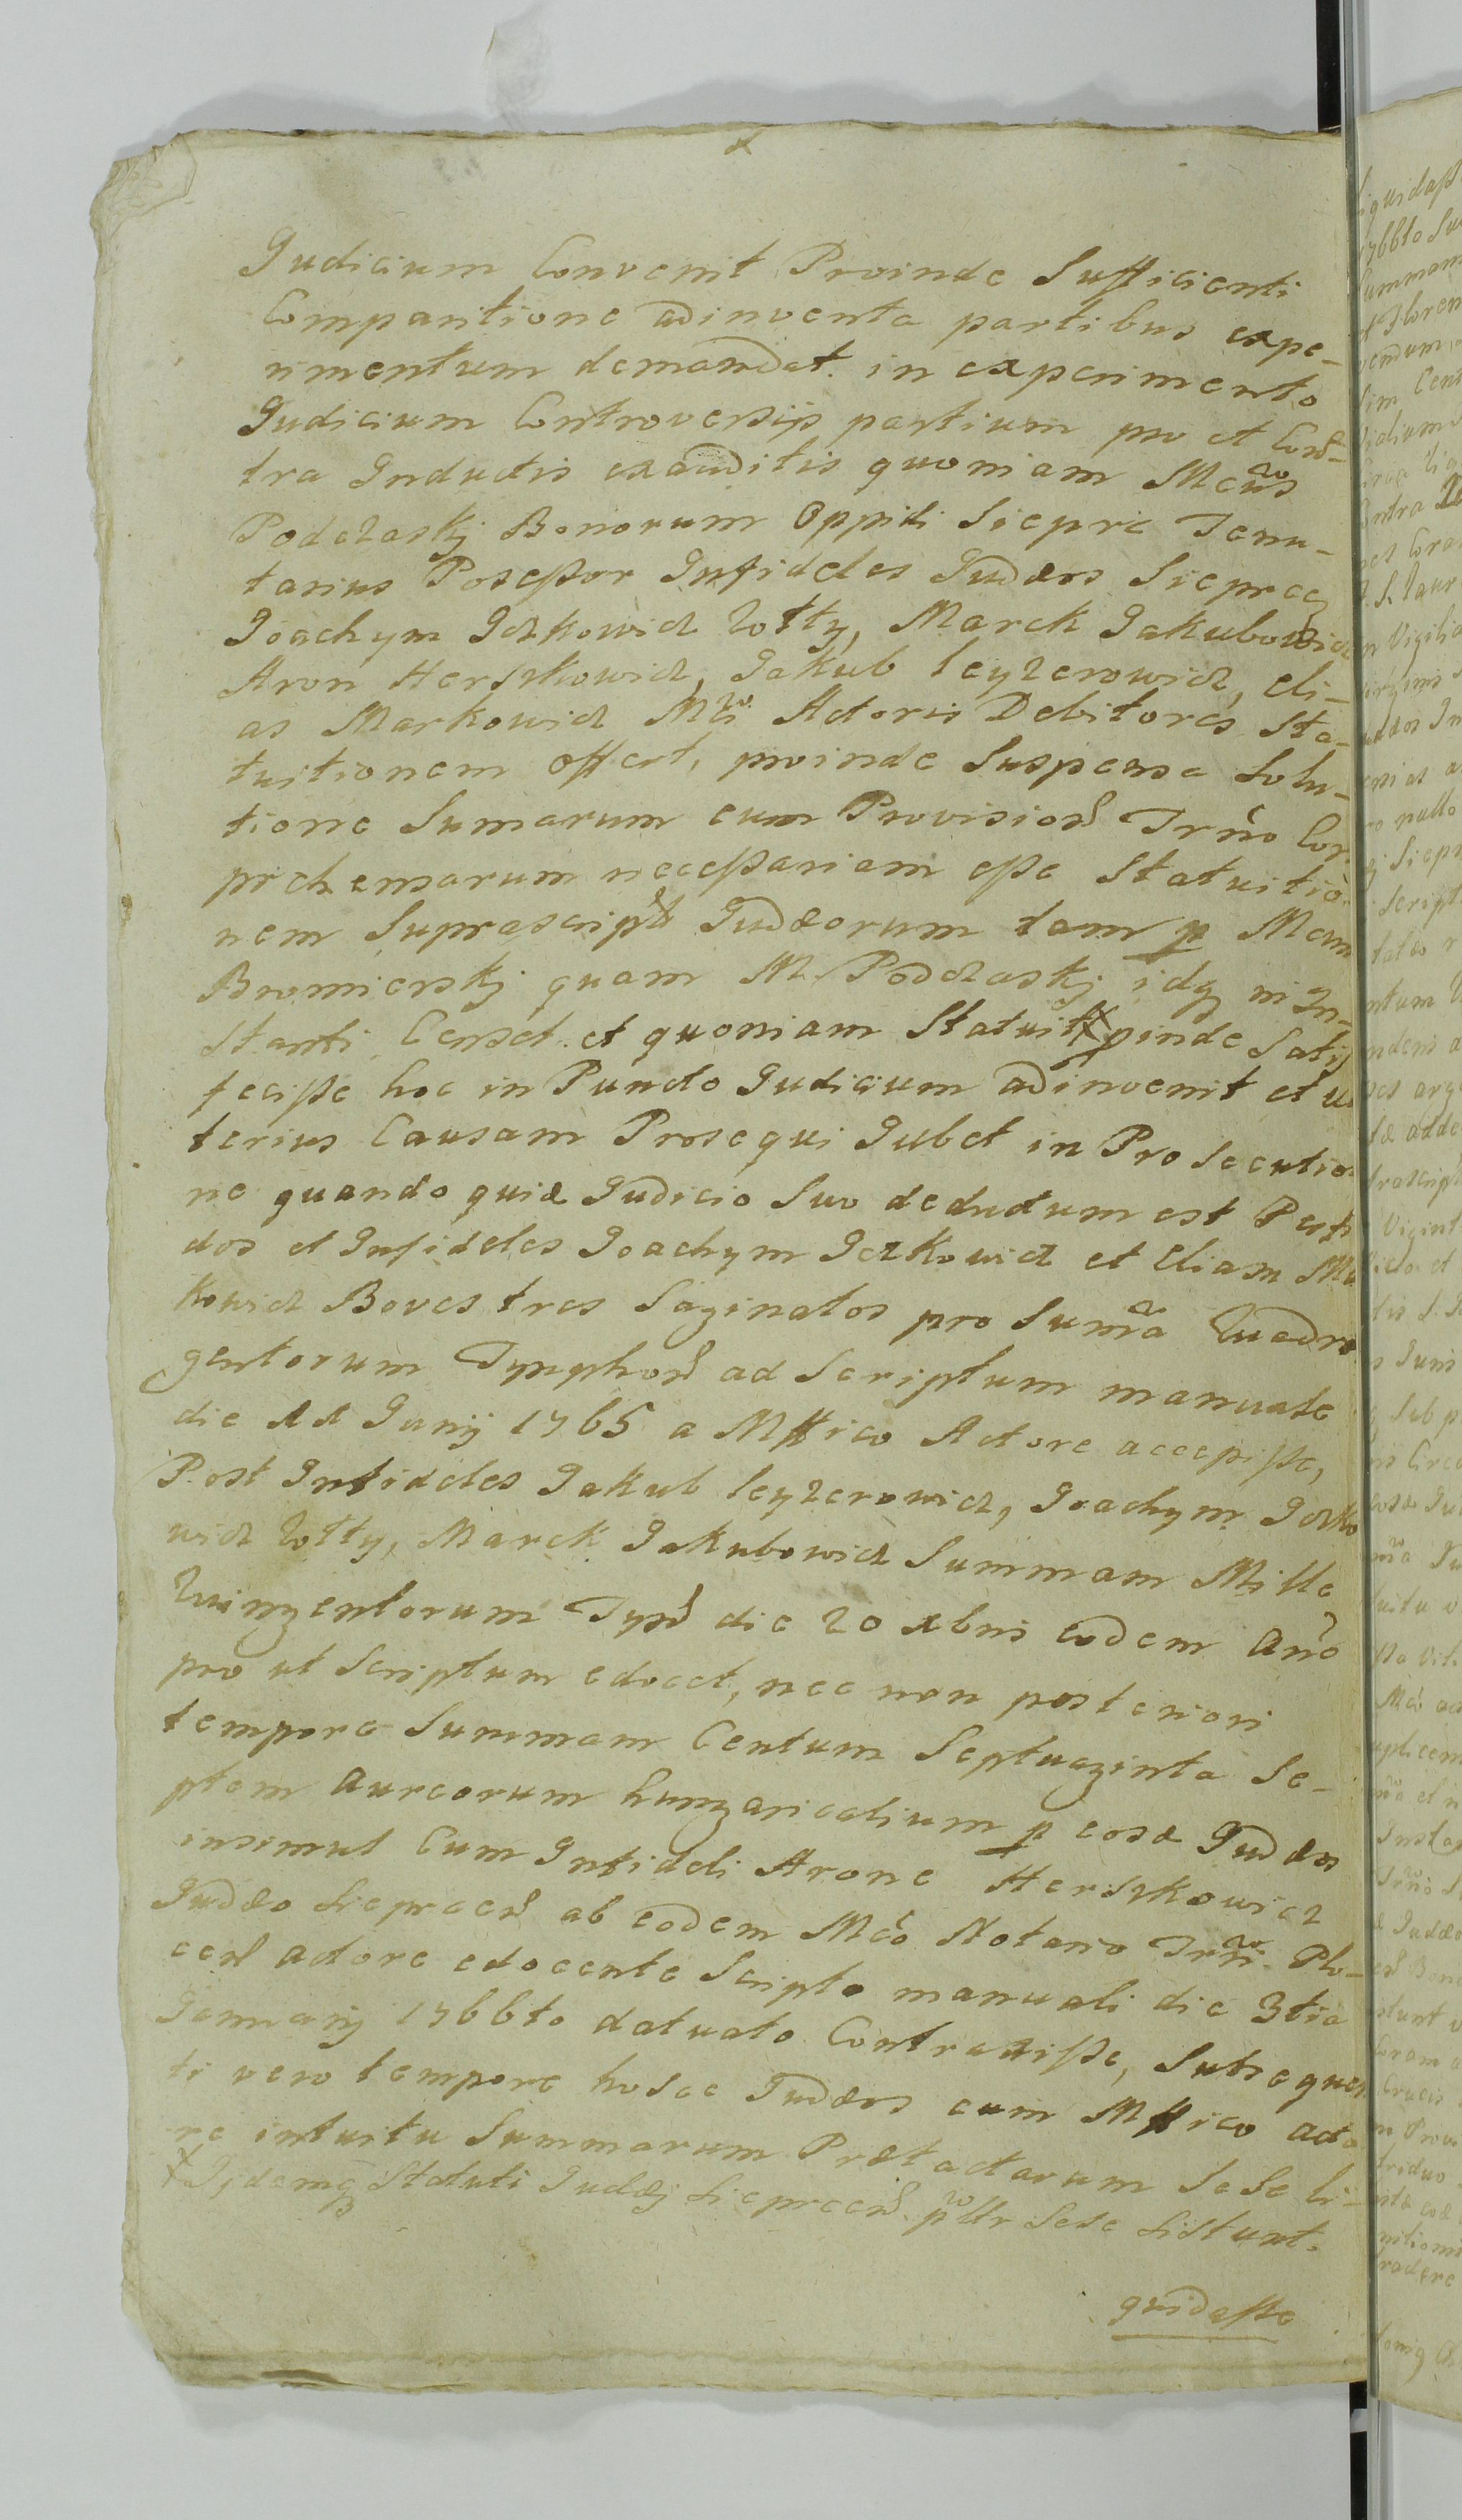 Judicium Convenit Proinde Sufficienti
Comparitione adinventa partibus expe-
rimentum demandat. in experimento
Judicium Controversiis partium pro et Con-
tra Inductis exauditis quoniam Mcus
Podczaskj Bonorum Oppidi Sieprc Tenu-
tarius Posessor Infideles Judæos Sieprcen
Joachym Jczkowicz Zołty, Marek Jakubowicz
Aron Herszkowicz, Jakub Leyzerowicz, eli-
as Markowicz Mci Actoris Debitores Sta-
tuitionem offert, proinde Suspensa Solu-
tione Sumarum cum Provisione Trno Com
prehensarum necessariam esse Statuitio-
nem Suprascript Judæorum tam p Mcum
Bromierskj quam M. Podczaskj idq in In-
stanti Censet. et quoniam Statuit X pinde Satis
fecisse hoc in Puncto Judicium adinvenit et ul
terius Causam Prosequi Jubet in Prosecutio
ne quando quidæ Judicio Suo deductum est Perfi
dos et Infideles Joachym Jczkowicz et Eliam Mar
kowicz Boves tres Saginatos pro Suma Quadrin
gentorum Tynphon ad Scriptum manuale
die 11 Junij 1765 a Mffico Actore accepisse,
Post Infideles Jakub Leyzerowicz, Joachym Jczko
wicz Zołty, Marek Jakubowicz Summam Mille
Quingentorum Tyn die 20 xbris eodem Anno
pro ut Scriptum edocet, nec non posteriori
tempore Summam Centum Septuaginta Se-
ptem Aureorum hungaricalium p eosd Judæos
insimul Cum Infideli Arone Herszkowicz
Judæo Sieprcen ab eodem Mco Notario Trri Plo-
cen Actore edocente Scripto manuali die 3tia
Januarij 1766to datuato Contraxisse, Subsequen
ti vero tempore hosce Judæos cum Mffico Acto
re intuitu Summarum Prætactarum Sese li-
X Ijdemq Statuti Judæj Sieprcen pltr Sese Sistunt.
quidasse